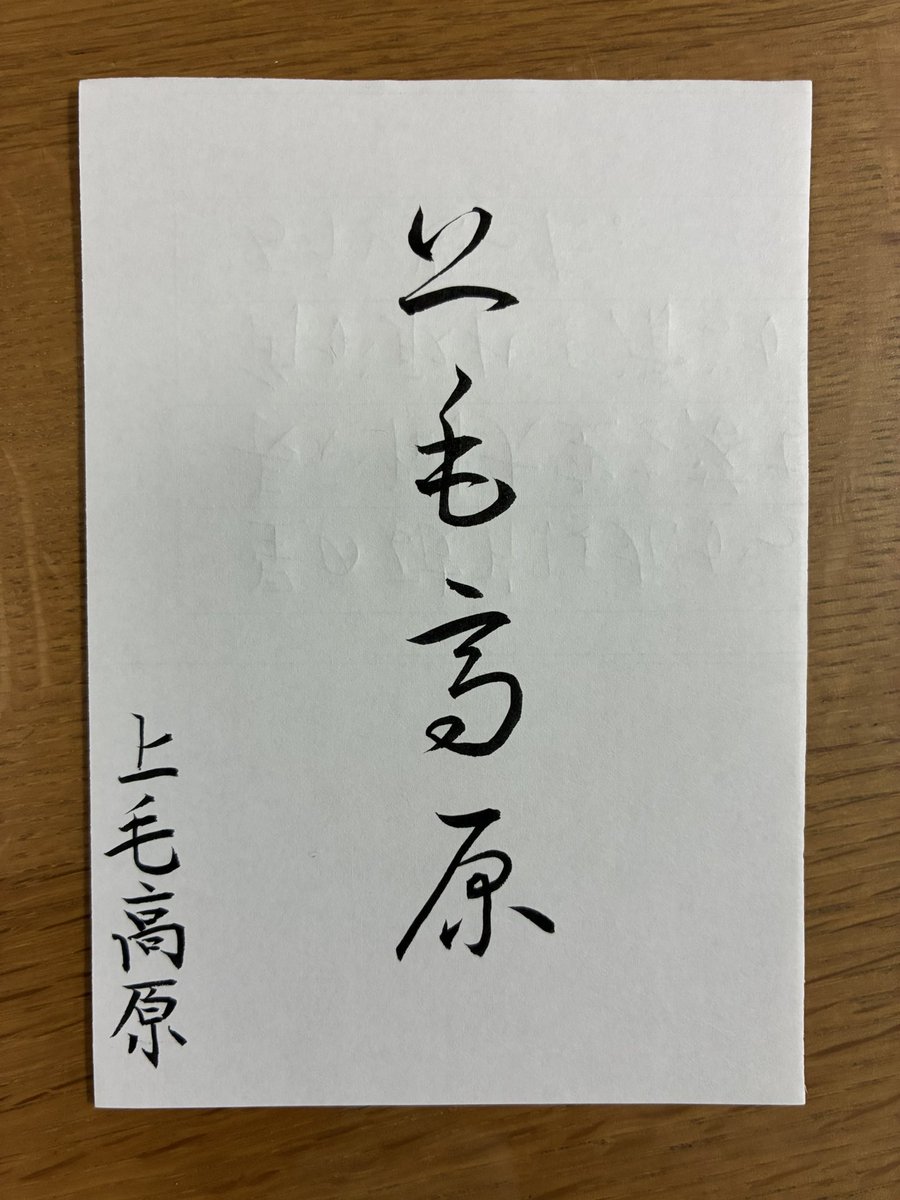 上毛高原
上毛高原